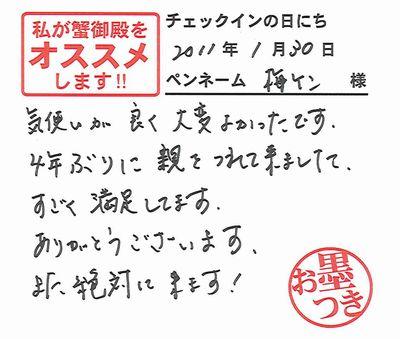 私が蟹御殿を
オススメ
します!!
チェックインの日にち
2011年 1月30日
ペンネーム 梅ケン 様
気使いが 良く 大変よかったです.
4年ぶりに 親をつれて来ましたて、
すごく 満足してます.
ありがとうございます.
また絶対に来ます!
お墨
つき